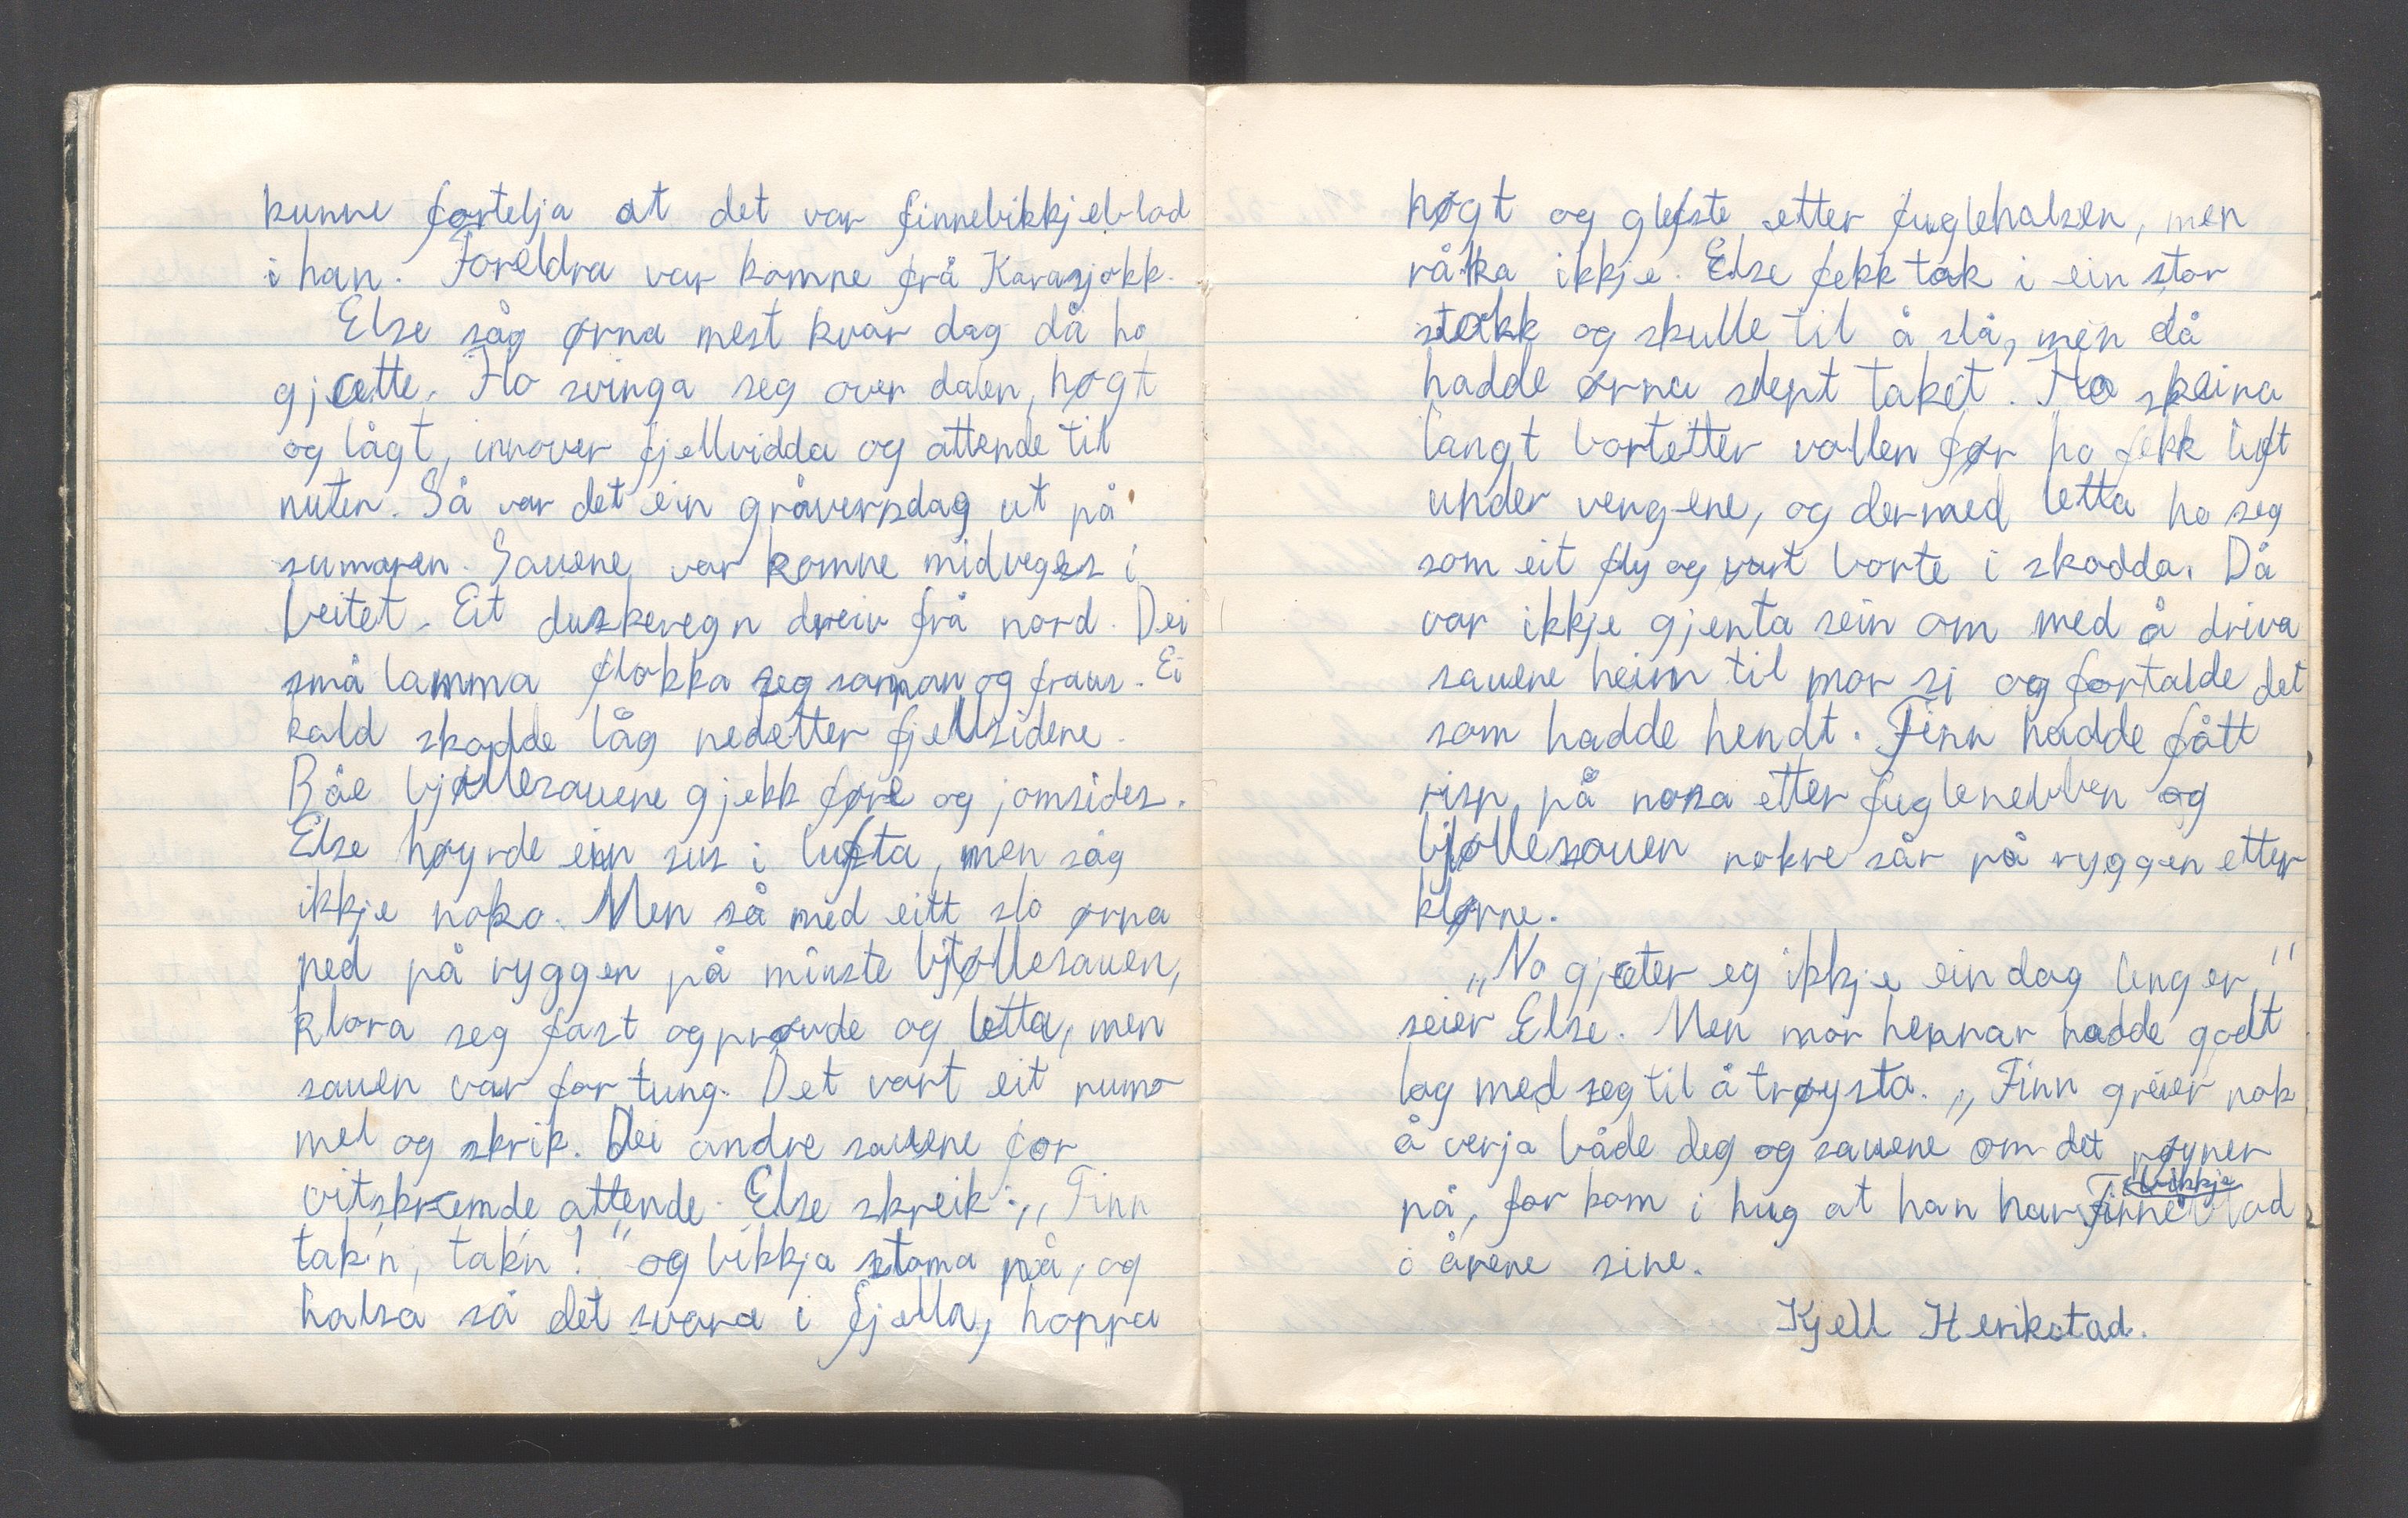 kunne fortelja at det var finnebikkjeblod
i han. Foreldra var komne frå Karasjokk.
Else såg ørna mest kvar dag då ho
gjætte. Ho svinga seg over dalen, høgt
og lågt, innover fjellvidda og attende til
nuten. Så var det ein gråversdag ut på
sumaren. Sauene var komne midveges i
beitet. Eit duskeregn dreiv frå nord. Dei
små lamma flokka seg saman og fraus. Ei
kald skodde låg nedetter fjellsidene.
Båe bjøllesauene gjekk føre og jomsides.
Else høyrde ein sus i lufta, men såg
ikkje noko. Men så med eitt slo ørna
ned på ryggen på minste bjøllesauen,
klora seg fast og prøvde og letta, men
sauen var for tung. Det vart eit rumo
mel og skrik. Dei andre sauene for
vitskremde attende. Else skreik: „Finn
tak'n, tak'n!" og bikkja stoma på, og
halsa så det svara i fjella, hoppa
høgt og glefste etter fuglehalsen, men
råka ikkje. Else fekk tak i ein stor
stokk og skulle til å slå, men då
hadde ørna slept taket. Ho skeina
langt bortetter vollen før ho fekk luft
under vengene, og dermed letta ho seg
som eit fly og vart borte i skodda. Då
var ikkje gjenta sein om med å driva
sauene heim til mor si og fortalde det
som hadde hendt. Finn hadde fått
risp på nosa etter fuglenebben og
bjøllesauen nokre sår på ryggen etter
klørne.
„No gjæter eg ikkje ein dag lenger,"
seier Else. Men mor hennar hadde godt
lag med seg til å trøysta. „Finn greier nok
å verja både deg og sauene om det røyner
på, for kom i hug at han har Finnebikkjeblod
i årene sine.
Kjell Herikstad.